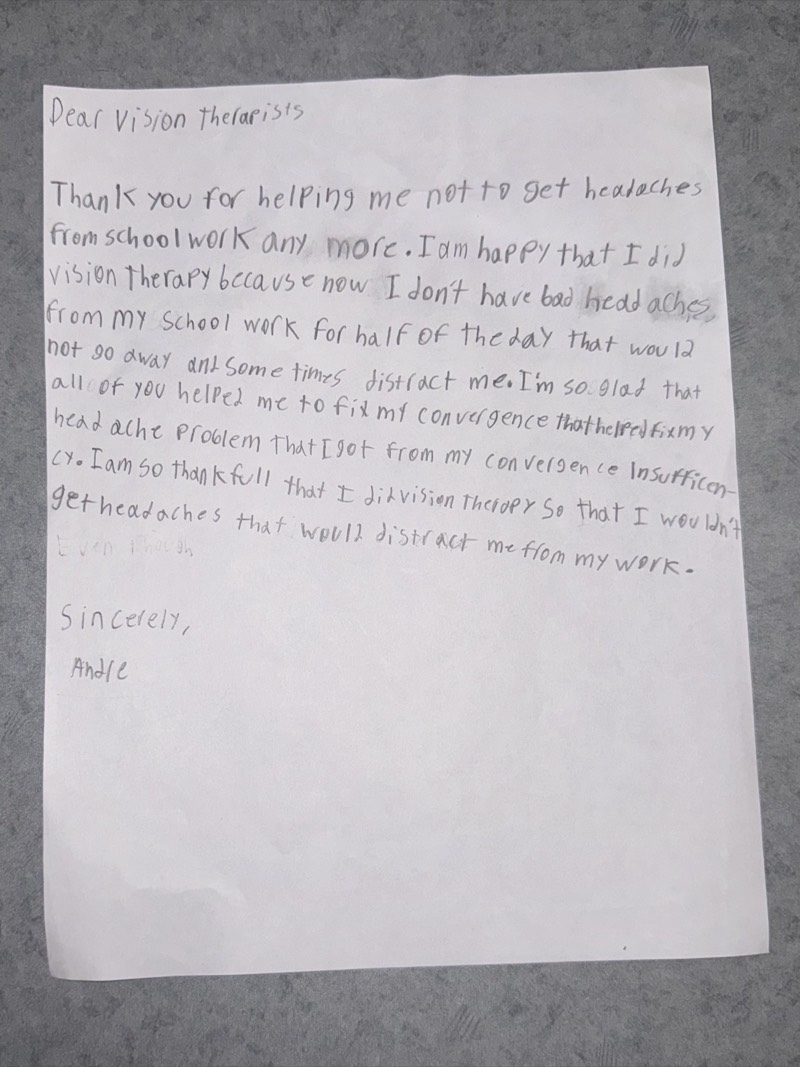 Dear Vision Therapists
Thank you for helping me not to get headaches
from school work any more. I am happy that I did
vision Therapy because now I don't have bad head aches,
from my school work for half of the day that would
not go away and some times distract me. I'm so glad that
all of you helped me to fix my convergence that helped fix my
head ache problem that I got from my convergence Insufficen-
cy. I am so thankfull that I did vision Therapy so that I wouldn't
get headaches that would distract me from my work.
Even though
Sincerely,
Andre